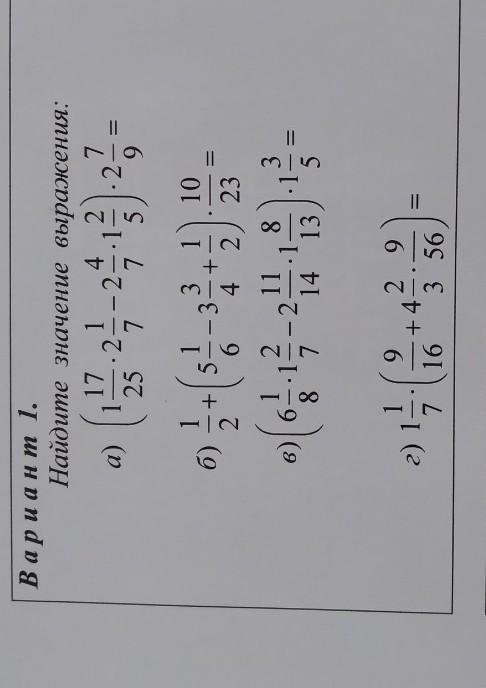 Вариант 1.
Найдите значение выражения:
а) (1 17/25 · 2 1/7 − 2 4/7 · 1 2/5) · 2 7/9 =
б) 1/2 + (5 1/6 − 3 3/4 + 1/2) · 10/23 =
в) (6 1/8 · 1 2/7 − 2 11/14 · 1 8/13) · 1 3/5 =
г) 1 1/7 · (9/16 + 4 2/3 · 9/56) =